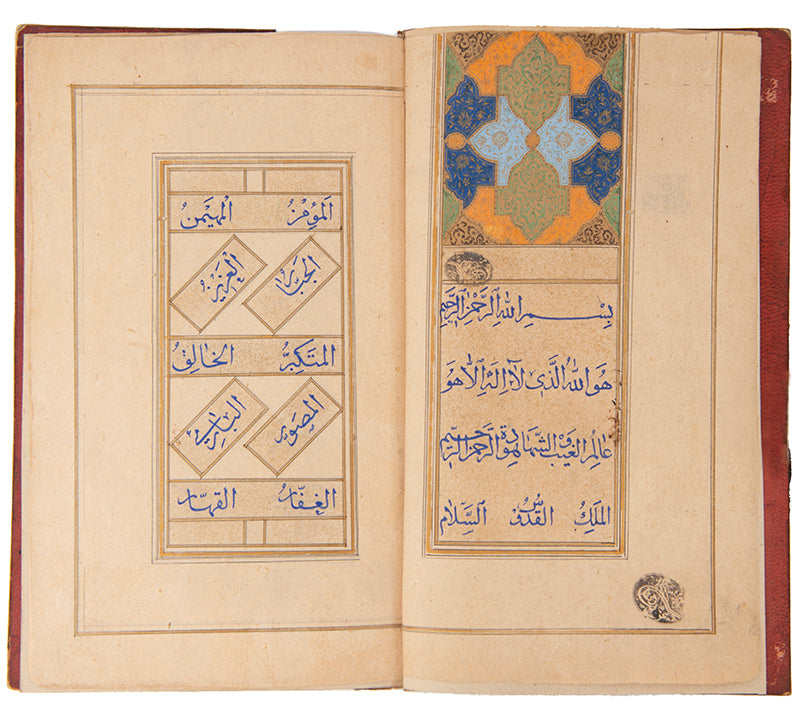 بِسْمِ اللهِ الرَّحْمٰنِ الرَّحِيمِ
هُوَ اللهُ الَّذِي لَا اِلٰهَ اِلَّا هُوَ
عَالِمُ الغَيْبِ وَالشَّهَادَةِ هُوَ الرَّحْمٰنُ الرَّحِيمُ
المَلِكُ القُدُّوسُ السَّلَامُ
المُؤْمِنُ المُهَيْمِنُ
الجَبَّارُ العَزِيزُ
المُتَكَبِّرُ الخَالِقُ
المُصَوِّرُ البَارِئُ
الغَفَّارُ القَهَّارُ